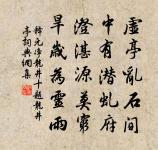 虛亭亂石間
中有潛虬府
澄湛源莫窮
旱歲為靈雨
釋元淨龍井十題龍井
亭詞典網集